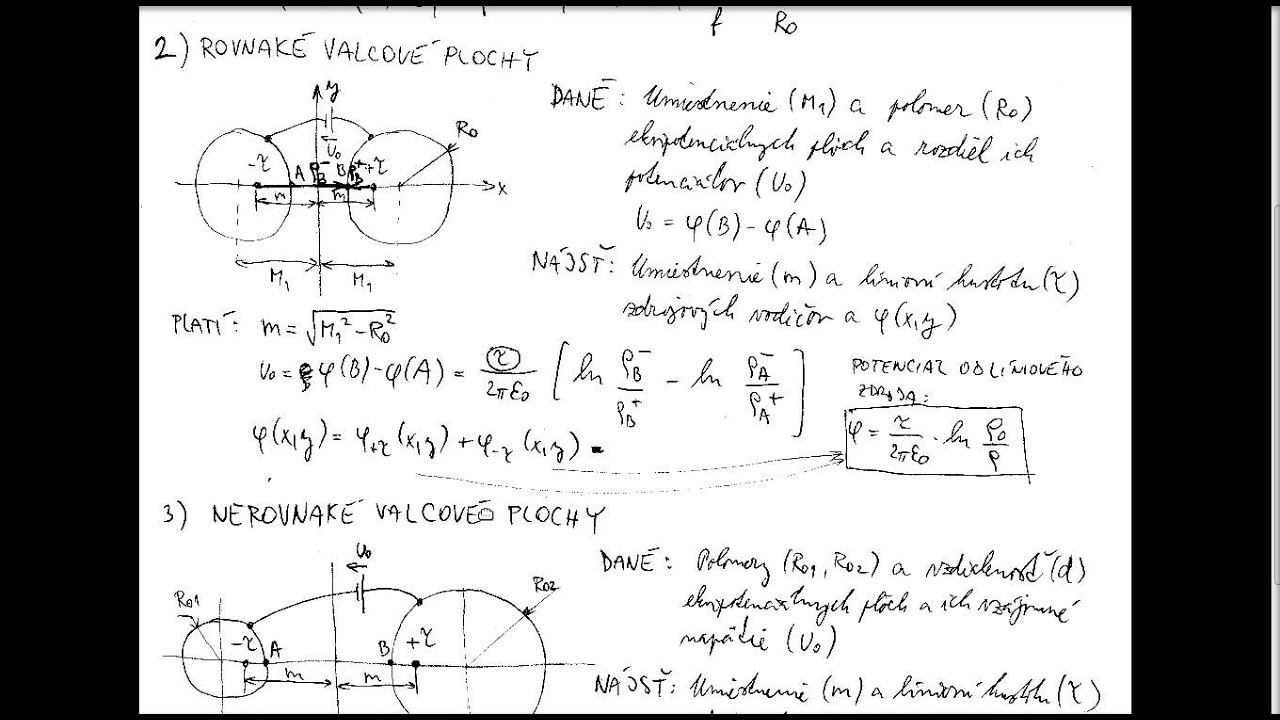 f R₀
2) ROVNAKÉ VALCOVÉ PLOCHY
y
R₀
U₀
-τ A ρ_B⁻ B ρ_B⁺ +τ
x
m m
M₁ M₁
DANÉ: Umiestnenie (M₁) a polomer (R₀)
ekvipotenciálnych plôch a rozdiel ich
potenciálov (U₀)
U₀ = φ(B) - φ(A)
NÁJSŤ: Umiestnenie (m) a líniovú hustotu (τ)
zdrojových vodičov a φ(x,y)
PLATÍ: m = √(M₁² - R₀²)
U₀ = φ(B) - φ(A) = τ/(2πε₀) [ ln ρ_B⁻/ρ_B⁺ - ln ρ_A⁻/ρ_A⁺ ]
φ(x,y) = φ₊τ(x,y) + φ₋τ(x,y)
POTENCIÁL OD LÍNIOVÉHO
ZDROJA:
φ = τ/(2πε₀) · ln ρ₀/ρ
3) NEROVNAKÉ VALCOVÉ PLOCHY
U₀
R₀₁ R₀₂
-τ A B +τ
m m
DANÉ: Polomery (R₀₁, R₀₂) a vzdialenosť (d)
ekvipotenciálnych plôch a ich vzájomné
napätie (U₀)
NÁJSŤ: Umiestnenie (m) a líniovú hustotu (τ)